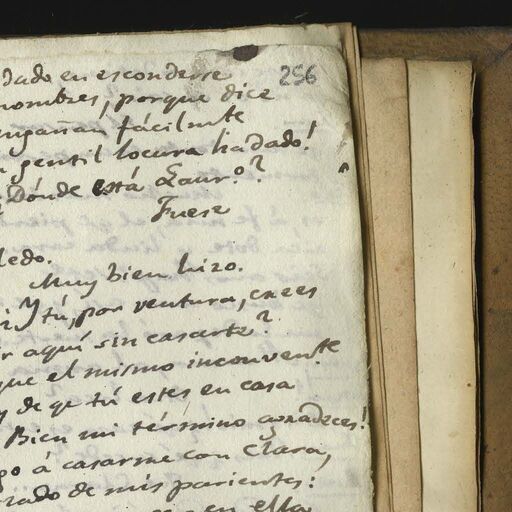 dado en esconderse
256
hombres, porque dice
engañan fácilmte
gentil locura ha dado!
¿Dónde está Laur.o?
Fuese
ledo.
Muy bien hizo.
Y tú, por ventura, crees
aquí sin casarte?
que el mismo inconvente
de qe tú estes en casa
Bien mi término agradeces!
go á casarme con Clara,
rado de mis parientes:
en ella